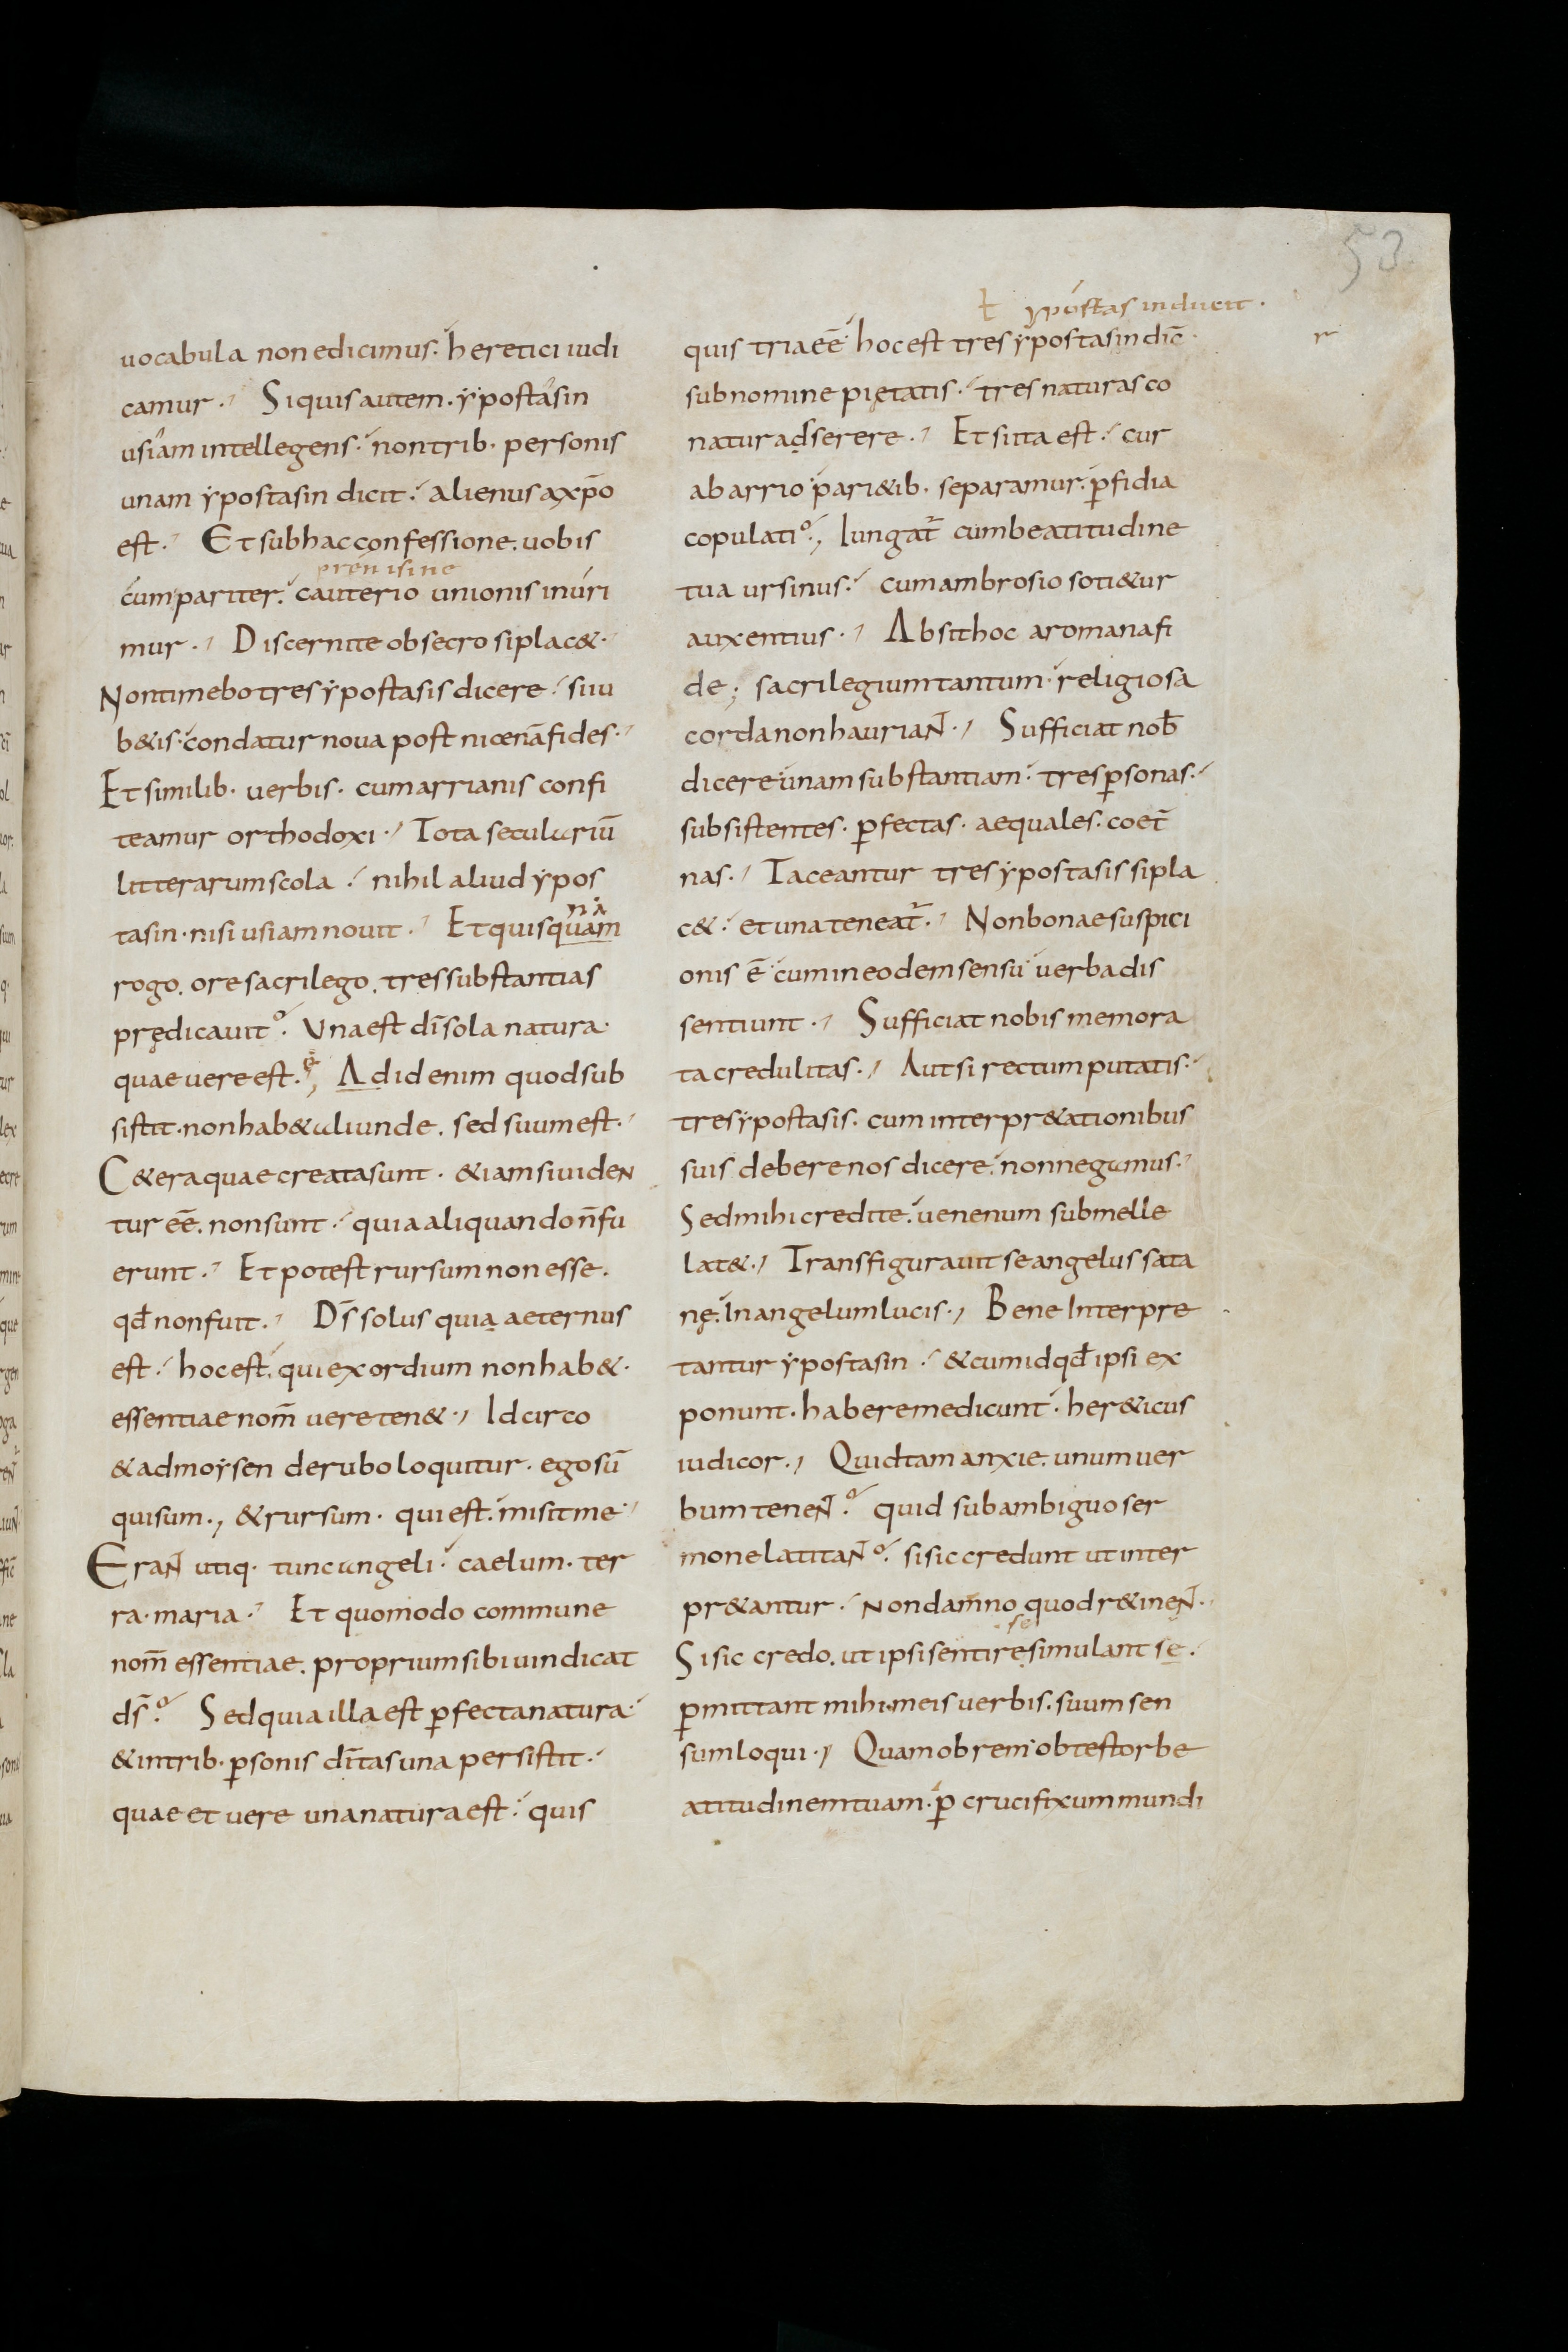 53
ł ypostas inducit ·
r
uocabula non edicimus · heretici iudi
camur · Si quis autem · ypostasin
usiam intellegens · non trib · personis
unam ypostasin dicit · alienus a xp̄o
est · Et sub hac confessione · uobis
cum pariter · cauterio unionis inuri
mur · Discernite obsecro si plac& ·
Non timebo tres ypostasis dicere · si iu
b&is · condatur noua post nicenā fides ·
Et similib · uerbis · cum arrianis confi
teamur orthodoxi · Tota seculariū
litterarum scola · nihil aliud ypos
tasin · nisi usiam nouit · Et quisquam
rogo · ore sacrilego · tres substantias
prędicauit · Una est dī sola natura ·
quae uere est · Ad id enim quod sub
sistit · non hab& aliunde · sed suum est ·
C&era quae creata sunt · &iam si uiden
tur eē · non sunt · quia aliquando n̄ fu
erunt · Et potest rursum non esse ·
qđ non fuit · Dś solus quia aeternus
est · hoc est · qui exordium non hab& ·
essentiae nom̄ uere ten& · Idcirco
& ad moysen de rubo loquitur · ego sū
qui sum · & rursum · qui est · misit me ·
Erant̄ utiq · tunc angeli · caelum · ter
ra · maria · Et quomodo commune
nom̄ essentiae · proprium sibi uindicat
dś · Sed quia illa est ꝑfecta natura ·
& in trib · ꝑsonis dī tas una persistit ·
quae et uere una natura est · quis
quis tria eē · hoc est tres ypostasin dic̄ ·
sub nomine pietatis · tres naturas co
natur adserere · Et si ita est · cur
ab arrio pari&ib · separamur · ꝑfidia
copulati · Iungat̄ cum beatitudine
tua ursinus · cum ambrosio soti&ur
auxentius · Absit hoc a romana fi
de ; sacrilegium tantum · religiosa
corda non haurian̄ · Sufficiat nob̄
dicere unam substantiam · tres ꝑsonas ·
subsistentes · ꝑfectas · aequales · coet̄
nas · Taceantur tres ypostasis si pla
c& · et una teneat̄ · Non bonae suspici
onis ē · cum in eodem sensu uerba dis
sentiunt · Sufficiat nobis memora
ta credulitas · Aut si rectum putatis ·
tres ypostasis · cum interpr&ationibus
suis debere nos dicere · non negamus ·
Sed mihi credite · uenenum sub melle
lat& · Transfigurauit se angelus sata
nę · In angelum lucis · Bene Interpre
tantur ypostasin · & cum id qđ ipsi ex
ponunt · habere me dicunt · her&icus
iudicor · Quid tam anxie · unum uer
bum tenen̄ · quid sub ambiguo ser
mone latitan̄ · si sic credunt ut inter
pr&antur · Non dam̄no quod r&inen̄ ·
Si sic credo · ut ipsi sentire se simulant se ·
ꝑmittant mihi · meis uerbis · suum sen
sum loqui · Quam ob rem obtestor be
atitudinem tuam · ꝑ crucifixum mundi